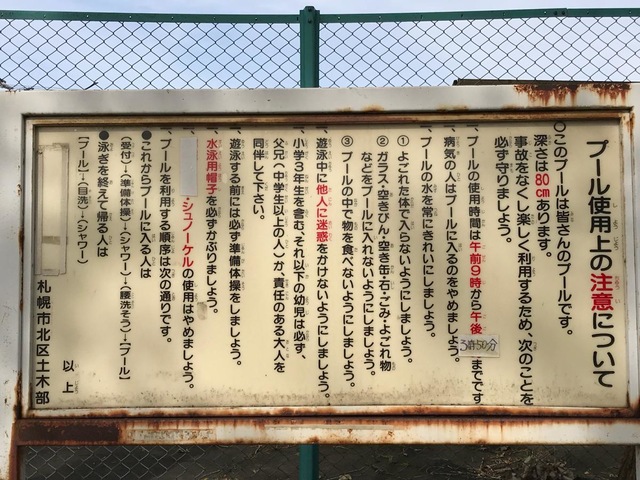 プール使用上の注意について
○このプールは皆さんのプールです。
深さは80cmあります。
事故をなくし楽しく利用するため、次のことを
必ず守りましょう。
一、プールの使用時間は午前9時から午後3時50分までです。
一、病気の人はプールに入るのをやめましょう。
一、プールの水を常にきれいにしましょう。
①よごれた体で入らないようにしましょう。
②ガラス・空きびん・空き缶・石・ごみ・よごれ物
などをプールに入れないようにしましょう。
③プールの中で物を食べないようにしましょう。
一、遊泳中に他人に迷惑をかけないようにしましょう。
一、小学3年生を含む、それ以下の幼児は必ず、
父兄(中学生以上の人)か、責任のある大人を
同伴して下さい。
一、遊泳する前には必ず準備体操をしましょう。
一、水泳用帽子を必ずかぶりましょう。
・シュノーケルの使用はやめましょう。
一、プールを利用する順序は次の通りです。
●これからプールに入る人は
〔受付〕→〔準備体操〕→〔シャワー〕→〔腰洗そう〕→〔プール〕
●泳ぎを終えて帰る人は
〔プール〕→〔目洗〕→〔シャワー〕
以上
札幌市北区土木部